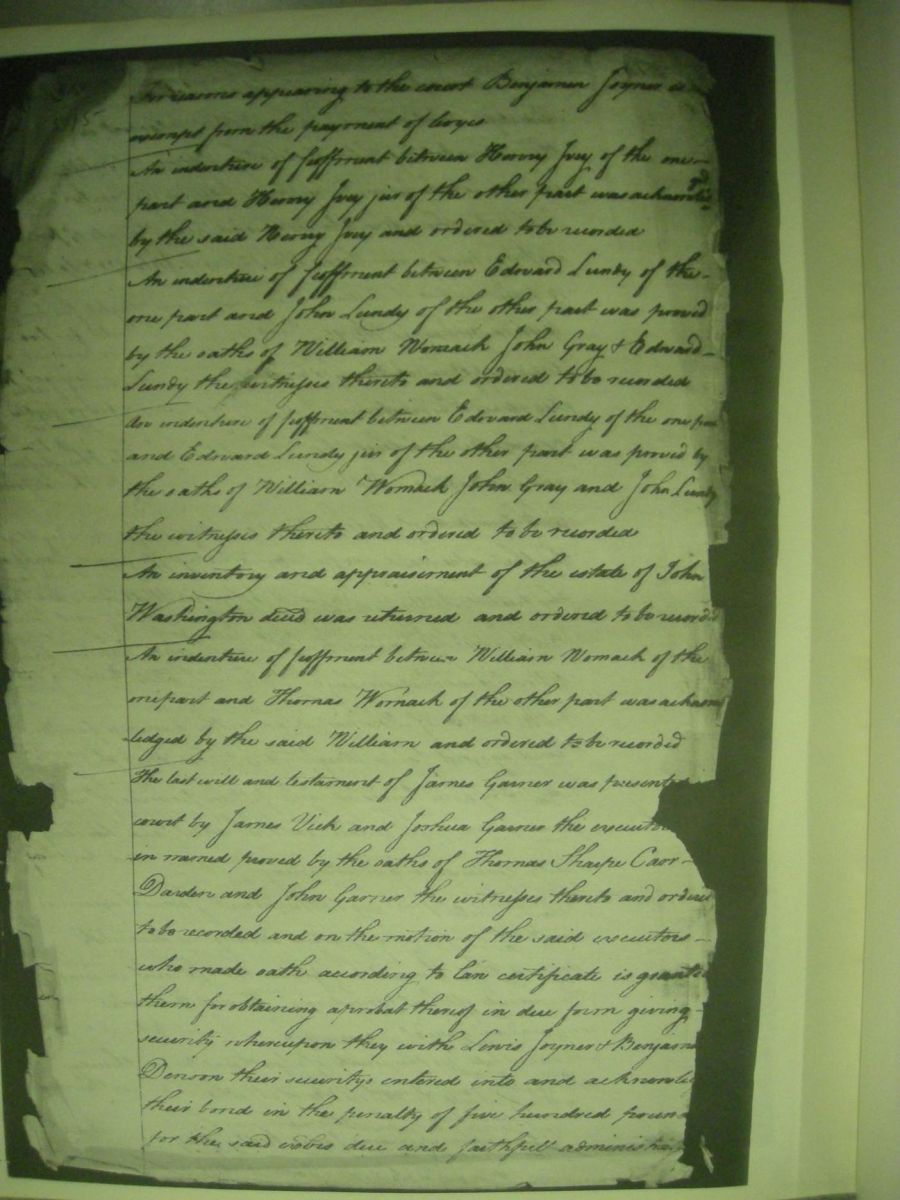 For reasons appearing to the court Benjamin Joyner is
exempt from the payment of levyes
An indenture of feoffment between Henry Ivey of the one
part and Henry Ivey junr of the other part was acknowledgd
by the said Henry Ivey and ordered to be recorded
An indenture of feoffment between Edward Lundy of the
one part and John Lundy of the other part was proved
by the oaths of William Womack John Gray & Edward
Lundy the witnesses thereto and ordered to be recorded
An indenture of feoffment between Edward Lundy of the one part
and Edward Lundy junr of the other part was proved by
the oaths of William Womack John Gray and John Lundy
the witnesses thereto and ordered to be recorded
An inventory and appraisement of the estate of John
Washington decd was returned and ordered to be recorded
An indenture of feoffment between William Womack of the
one part and Thomas Womack of the other part was acknow
ledged by the said William and ordered to be recorded
The last will and testament of James Garner was presented in
court by James Vick and Joshua Garner the executors
in named proved by the oaths of Thomas Sharpe
Darden and John Garner the witnesses thereto and ordered
to be recorded and on the motion of the said executors
who made oath according to law certificate is granted
them for obtaining a probat thereof in due form giving
security whereupon they with Lewis Joyner & Benjamin
Denson their securitys entered into and acknowled
their bond in the penalty of five hundred pound
for the said due and faithfull administra